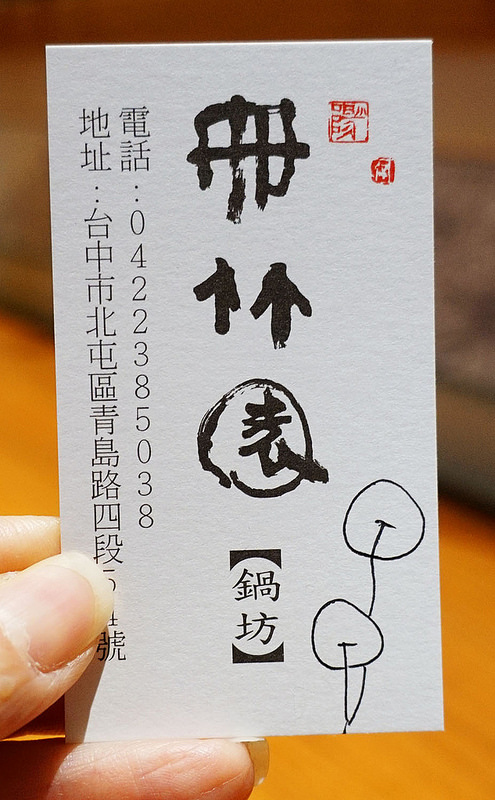 冊竹園
【鍋坊】
電話：0422385038
地址：台中市北屯區青島路四段54號